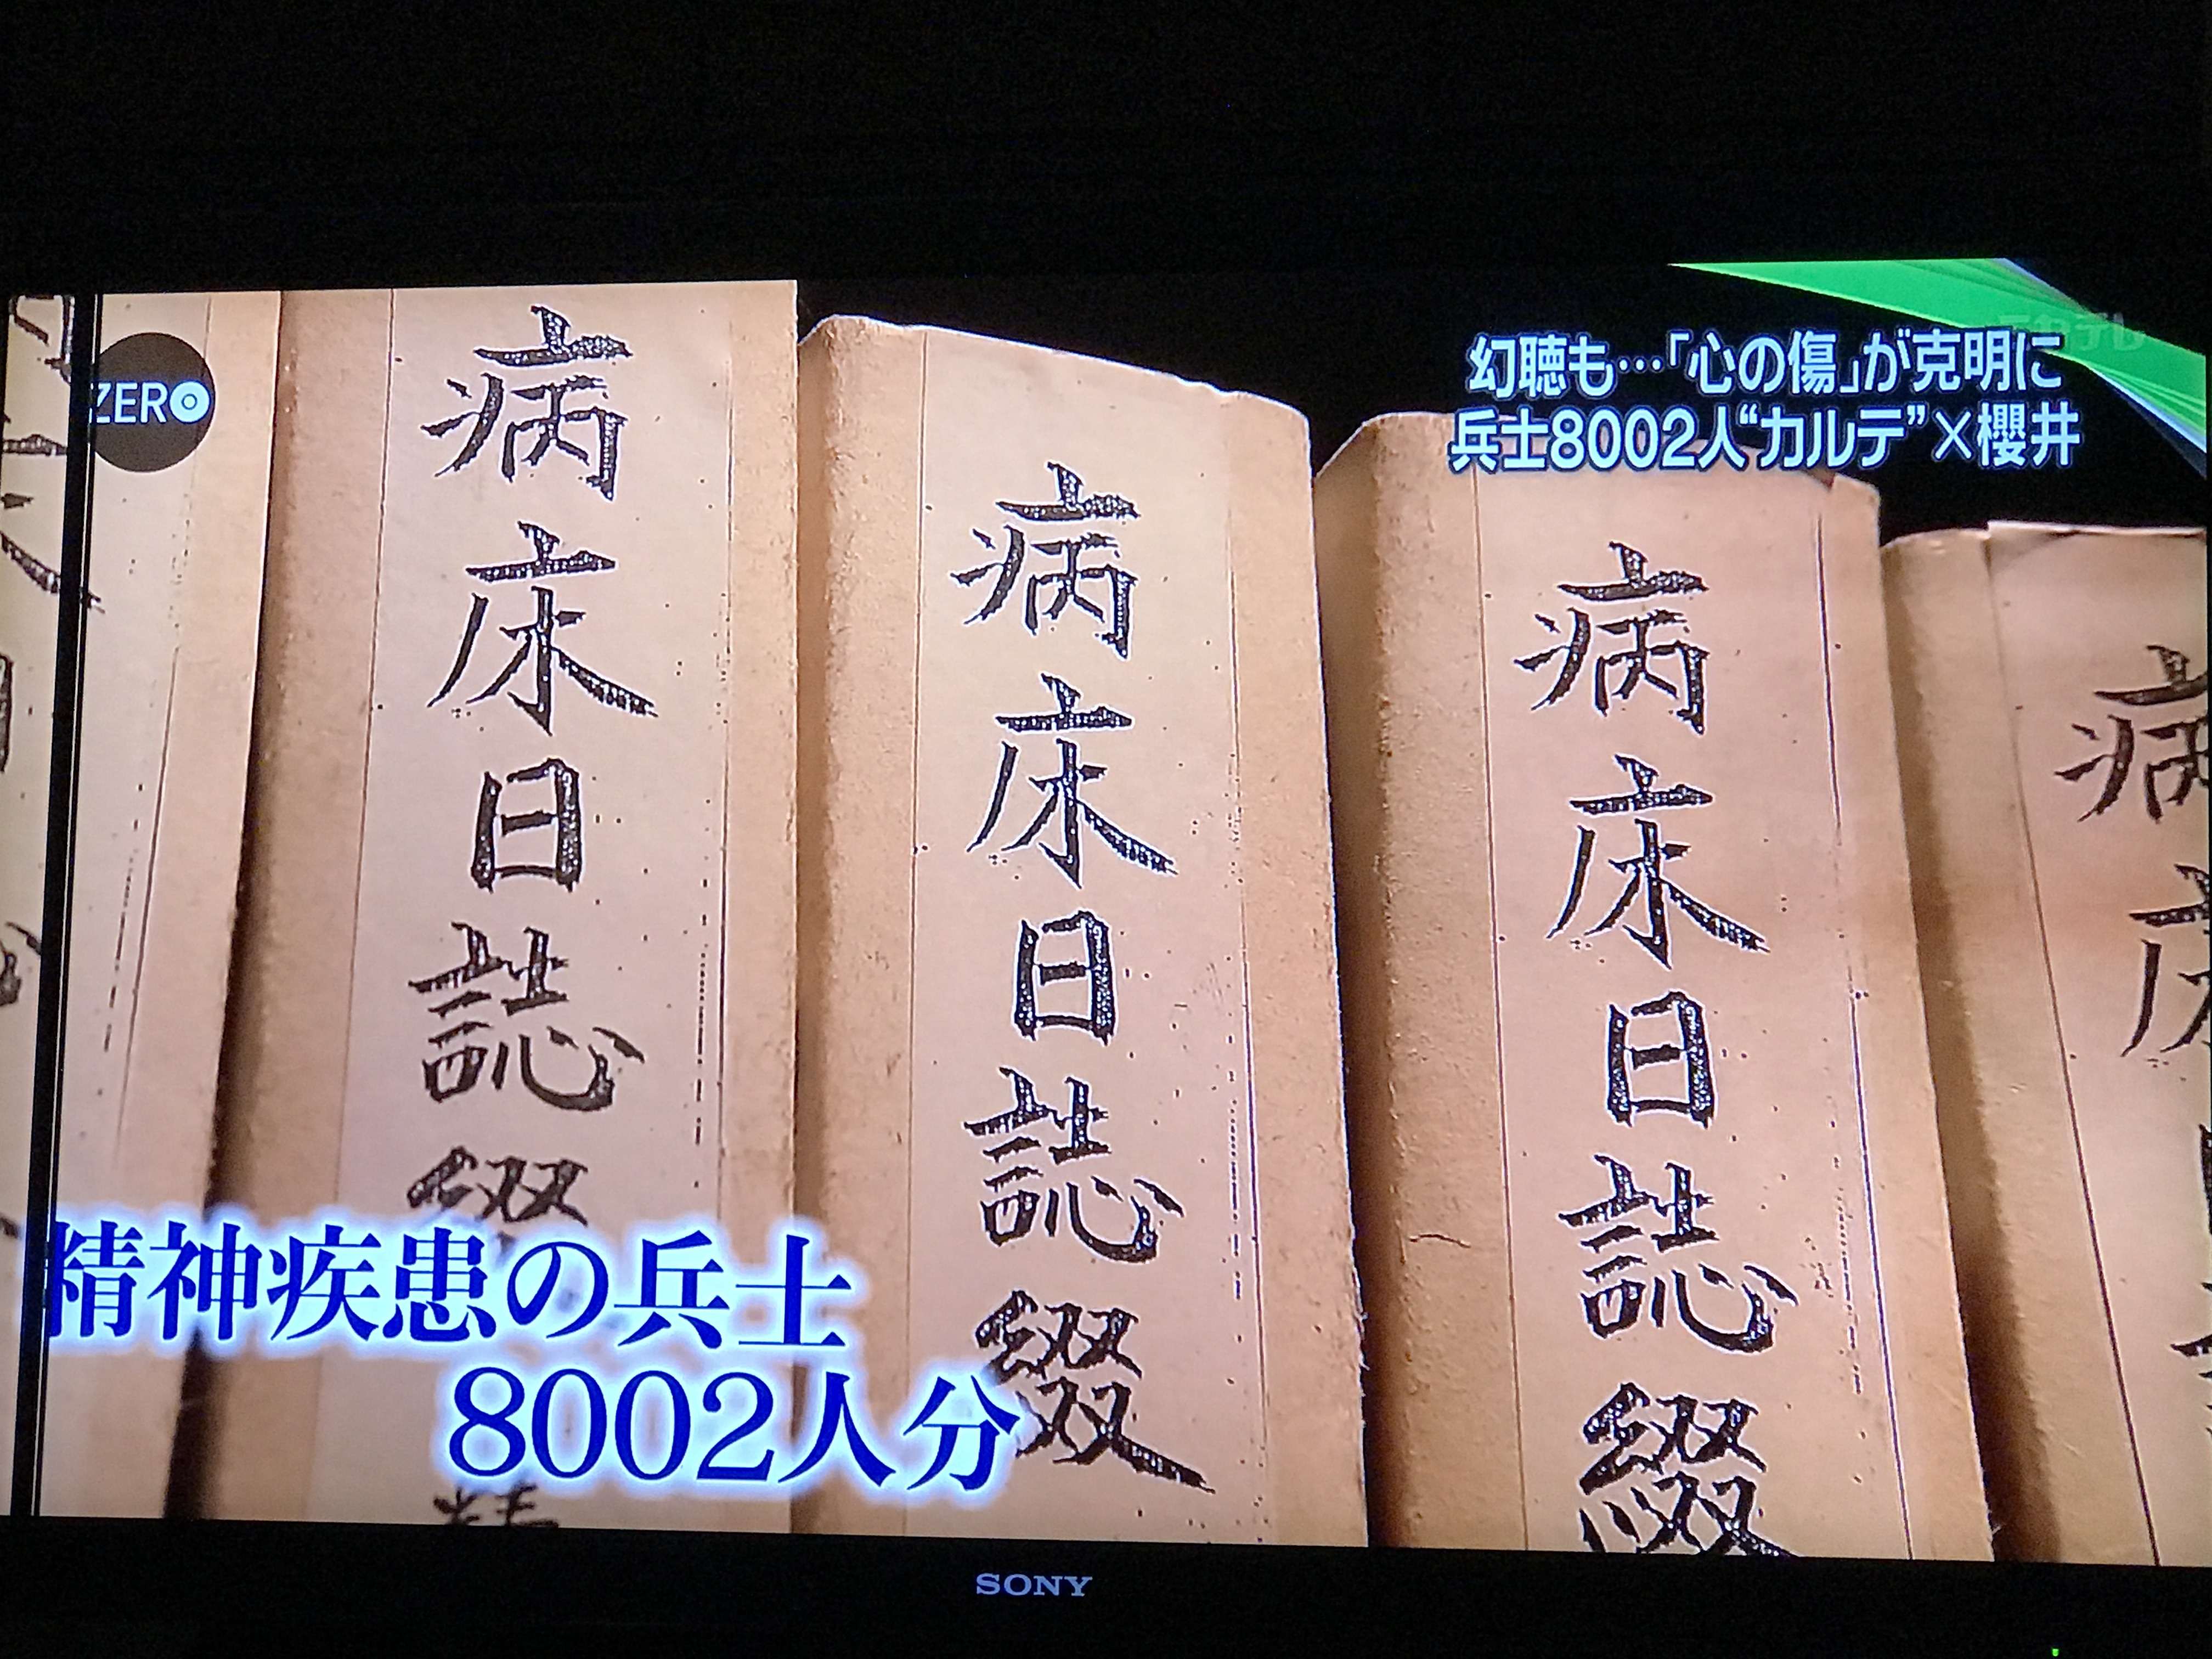 ZERO
日テレ
幻聴も…「心の傷」が克明に
兵士8002人“カルテ”×櫻井
病床日誌綴
病床日誌綴
病床日誌綴
精神疾患の兵士
8002人分
SONY